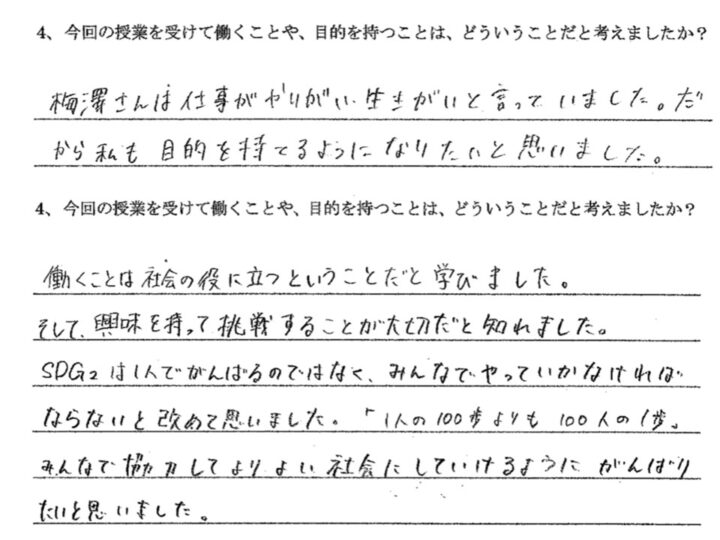 4、今回の授業を受けて働くことや、目的を持つことは、どういうことだと考えましたか？
梅澤さんは仕事がやりがい、生きがいと言っていました。だ
から私も目的を持てるようになりたいと思いました。
4、今回の授業を受けて働くことや、目的を持つことは、どういうことだと考えましたか？
働くことは社会の役に立つということだと学びました。
そして、興味を持って挑戦することが大切だと知れました。
SDGsは1人でがんばるのではなく、みんなでやっていかなければ
ならないと改めて思いました。「1人の100歩よりも100人の1歩」
みんなで協力してよりよい社会にしていけるようにがんばり
たいと思いました。